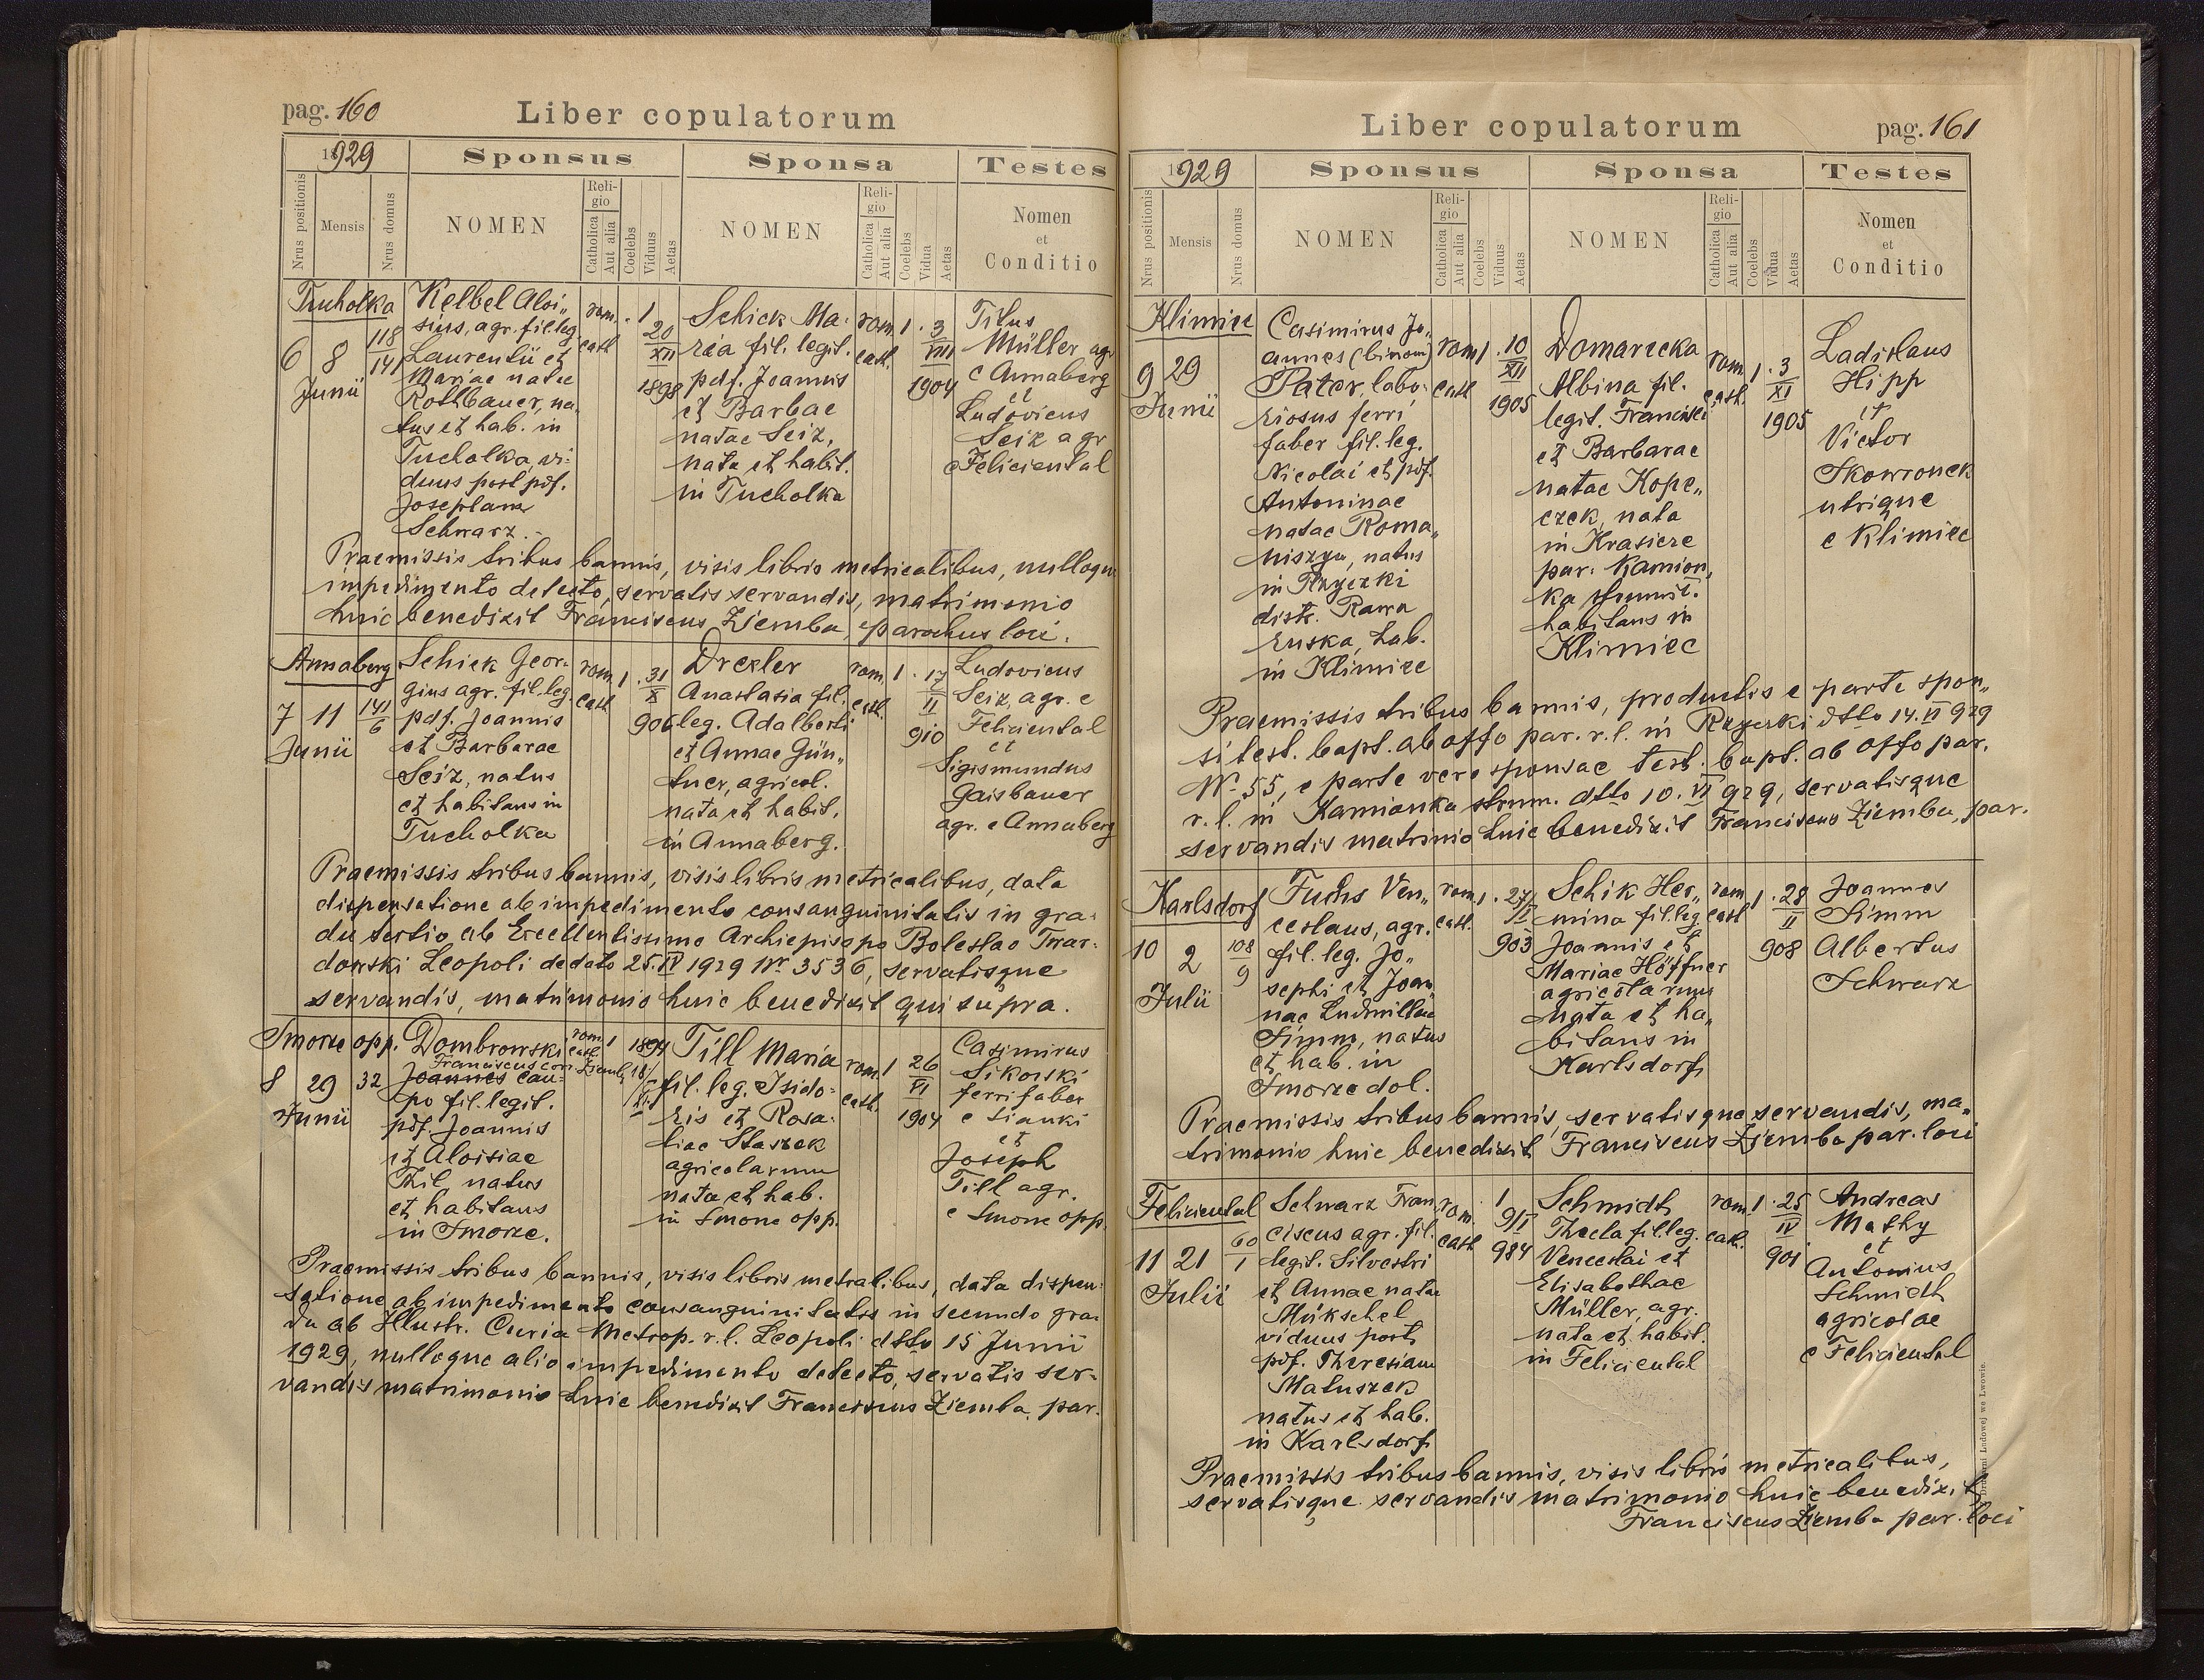 pag. 160
Liber copulatorum
1929
Sponsus
Sponsa
Testes
Nrus positionis
Mensis
Nrus domus
NOMEN
Religio
Catholica
Aut alia
Coelebs
Viduus
Aetas
NOMEN
Religio
Catholica
Aut alia
Coelebs
Vidua
Aetas
Nomen
et
Conditio
Tucholka
6 8
Junii
118
141
Kelbel Aloi„
sius, agr. fil. leg.
Laurentii et
Mariae natae
Rothbauer, na„
tus et hab. in
Tucholka, vi:
duus post pdf.
Josepham
Schwarz.
rom. . 1
cath
20
XII
1898
Schick Ma:
ria fil. legit.
pdf. Joannis
et Barbae
natae Seiz,
nata et habit.
in Tucholka
rom. 1 . 3
cath. VIII
1904
Titus
Müller agr
e Annaberg
et
Ludovicus
Seiz agr
e Feliciental
Praemissis tribus bannis, visis libris metricalibus, nulloque
impedimento detecto, servatis servandis, matrimonio
huic benedixit Franciscus Ziemba, parochus loci.
Annaberg
7 11
Junii
141
6
Schick Geor:
gius agr. fil. leg.
pdf. Joannis
et Barbarae
Seiz, natus
et habitans in
Tucholka
rom. 1 . 31
cath. X
906
Drexler
Anastasia fil.
leg. Adalberti
et Annae Gün„
tner, agricol.
nata et habit.
in Annaberg.
rom. 1 . 17
cath. II
910
Ludovicus
Seiz, agr. e
Feliciental
et
Sigismundus
Gaisbauer
agr. e Annaberg
Praemissis tribus bannis, visis libris metricalibus, data
dispensatione ab impedimento consanguinitatis in gra:
du tertio ab Excellentissimo Archiepisopo Boleslao Twar:
dowski Leopoli dedato 25.IV 1929 Nr 3536, servatisque
servandis, matrimonio huic benedixit qui supra.
Smorze opp.
8 29 32
Junii
Dombrowski
Franciscus corr. Ziemba
Joannes cau:
po fil. legit.
pdf. Joannis
et Aloisiae
Thil, natus
et habitans
in Smorze.
rom. 1
cath.
1894
18/
Till Maria
fil. leg. Isido:
ris et Rosa:
liae Staszek
agricolarum
nata et hab.
in Smorze opp.
rom. 1 26
cath. VI
1904
Casimirus
Sikorski
ferri faber
e Sianki
et
Joseph
Till agr.
e Smorze opp.
Praemissis tribus bannis, visis libris metralibus, data dispen:
satione ab impedimento consanguinitatis in secundo gra:
du ab Illustr. Curia Metrop. r.l. Leopoli dtto 15 Junii
1929, nulloque alio impedimento detecto, servatis ser:
vandis matrimonio huic benedixit Franciscus Ziemba, par.
Liber copulatorum
pag. 161
1929
Sponsus
Sponsa
Testes
Nrus positionis
Mensis
Nrus domus
NOMEN
Religio
Catholica
Aut alia
Coelebs
Viduus
Aetas
NOMEN
Religio
Catholica
Aut alia
Coelebs
Vidua
Aetas
Nomen
et
Conditio
Klimiec
9 29
Junii
Casimirus Jo„
annes (binom)
Pater, labo:
riosus ferri
faber fil. leg.
Nicolai et pdf.
Antoninae
natae Roma„
niszyn, natus
in Rzyczki
distr. Rawa
ruska, hab.
in Klimiec
rom 1 . 10
cath XII
1905
Domarecka
Albina fil.
legit. Francisci
et Barbarae
natae Kope„
czek, nata
in Krasicze
par. Kamion„
ka strumil.
habitans in
Klimiec
rom. 1 . 3
cath. XI
1905
Ladislaus
Hipp
et
Victor
Skowronek
utrique
e Klimiec
Praemissis tribus bannis, productis e parte spon„
si test. bapt. ab offo par. r.l. in Rzyczki dtto 14.VI 929
Nº 55, e parte vere sponsae test. bapt. ab offo par.
r.l. in Kamionka strum. dtto 10.VI 929, servatisque
servandis matrimio huic benedixit Franciscus Ziemba, par.
Karlsdorf
10 2
Julii
108
9
Fuchs Ven„
ceslaus, agr.
fil. leg. Jo„
sephi et Joan„
nae Ludmillae
Simm, natus
et hab. in
Smorze dol.
rom. 1 . 27
cath. IX
903
Schik Her„
mina fil. leg.
Joannis et
Mariae Höffner
agricolarum
nata et ha„
bitans in
Karlsdorf
rom. 1 . 28
cath II
908
Joannes
Simm
Albertus
Schwarz
Praemissis tribus bannis, servatisque servandis, ma„
trimonio huic benedixit Franciscus Ziemba par. loci
Feliciental
11 21
Julii
60
1
Schwarz Fran„
ciscus agr. fil.
legit. Silvestri
et Annae natae
Mükschel
viduus post
pdf. Theresiam
Matuszek
natus et hab.
in Karlsdorf
rom. . 1
cath 9/I
984
Schmidt
Thecla fil. leg.
Venceslai et
Elisabethae
Müller, agr.
nata et habit.
in Feliciental
rom. 1 . 25
cath. IV
901
Andreas
Mathy
et
Antonius
Schmidt
agricolae
e Feliciental
Praemissis tribus bannis, visis libris metricalibus,
servatisque servandis matrimonio huic benedixit
Franciscus Ziemba par. loci
Drukarni Ludowej we Lwowie.